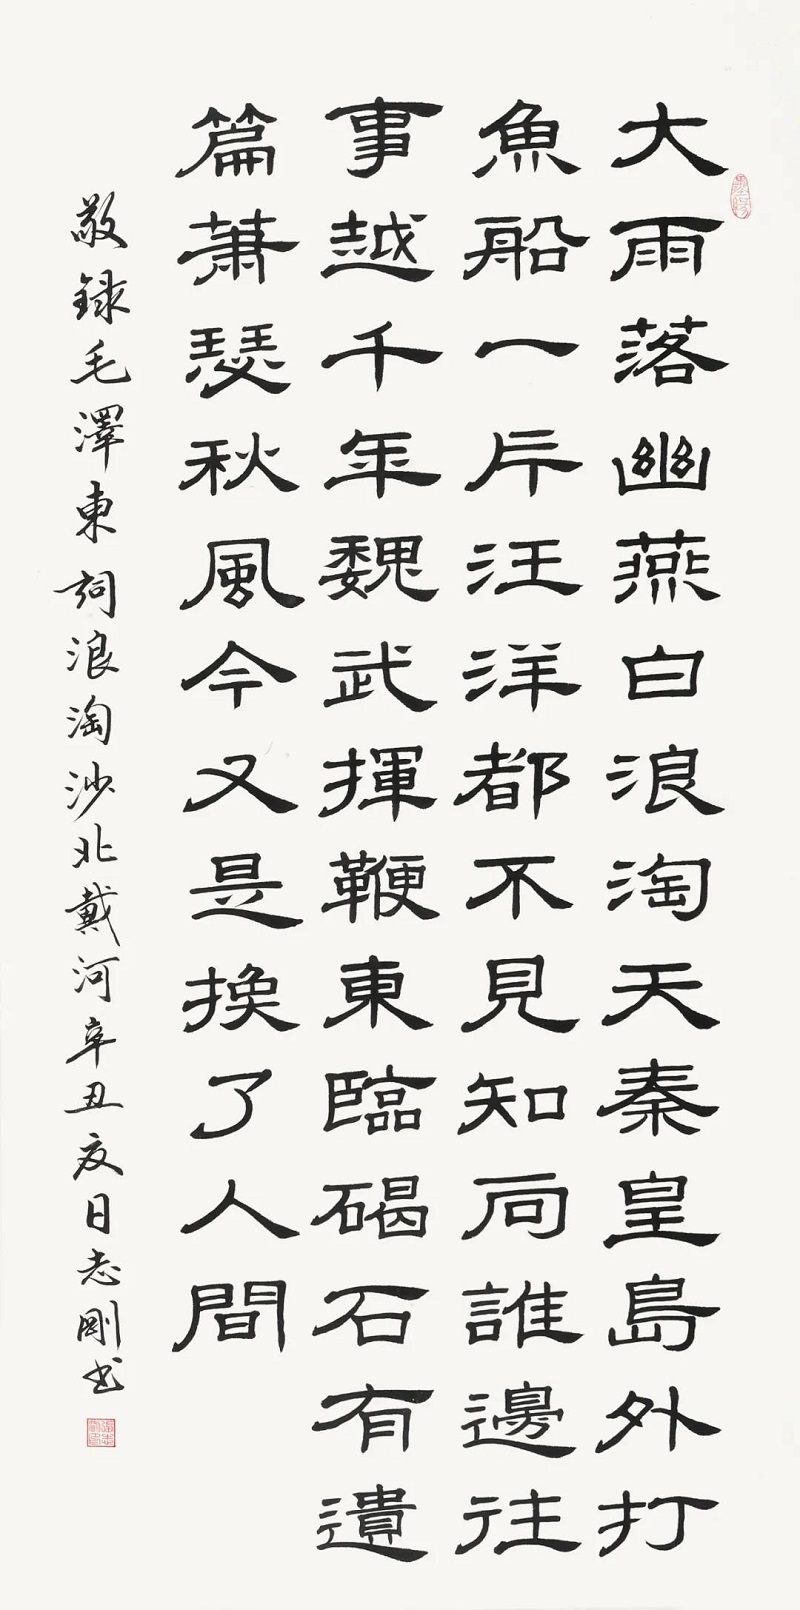 大雨落幽燕白浪淘天秦皇島外打
魚船一片汪洋都不見知向誰邊往
事越千年魏武揮鞭東臨碣石有遺
篇蕭瑟秋風今又是換了人間
敬録毛澤東詞浪淘沙北戴河辛丑夏日志剛书